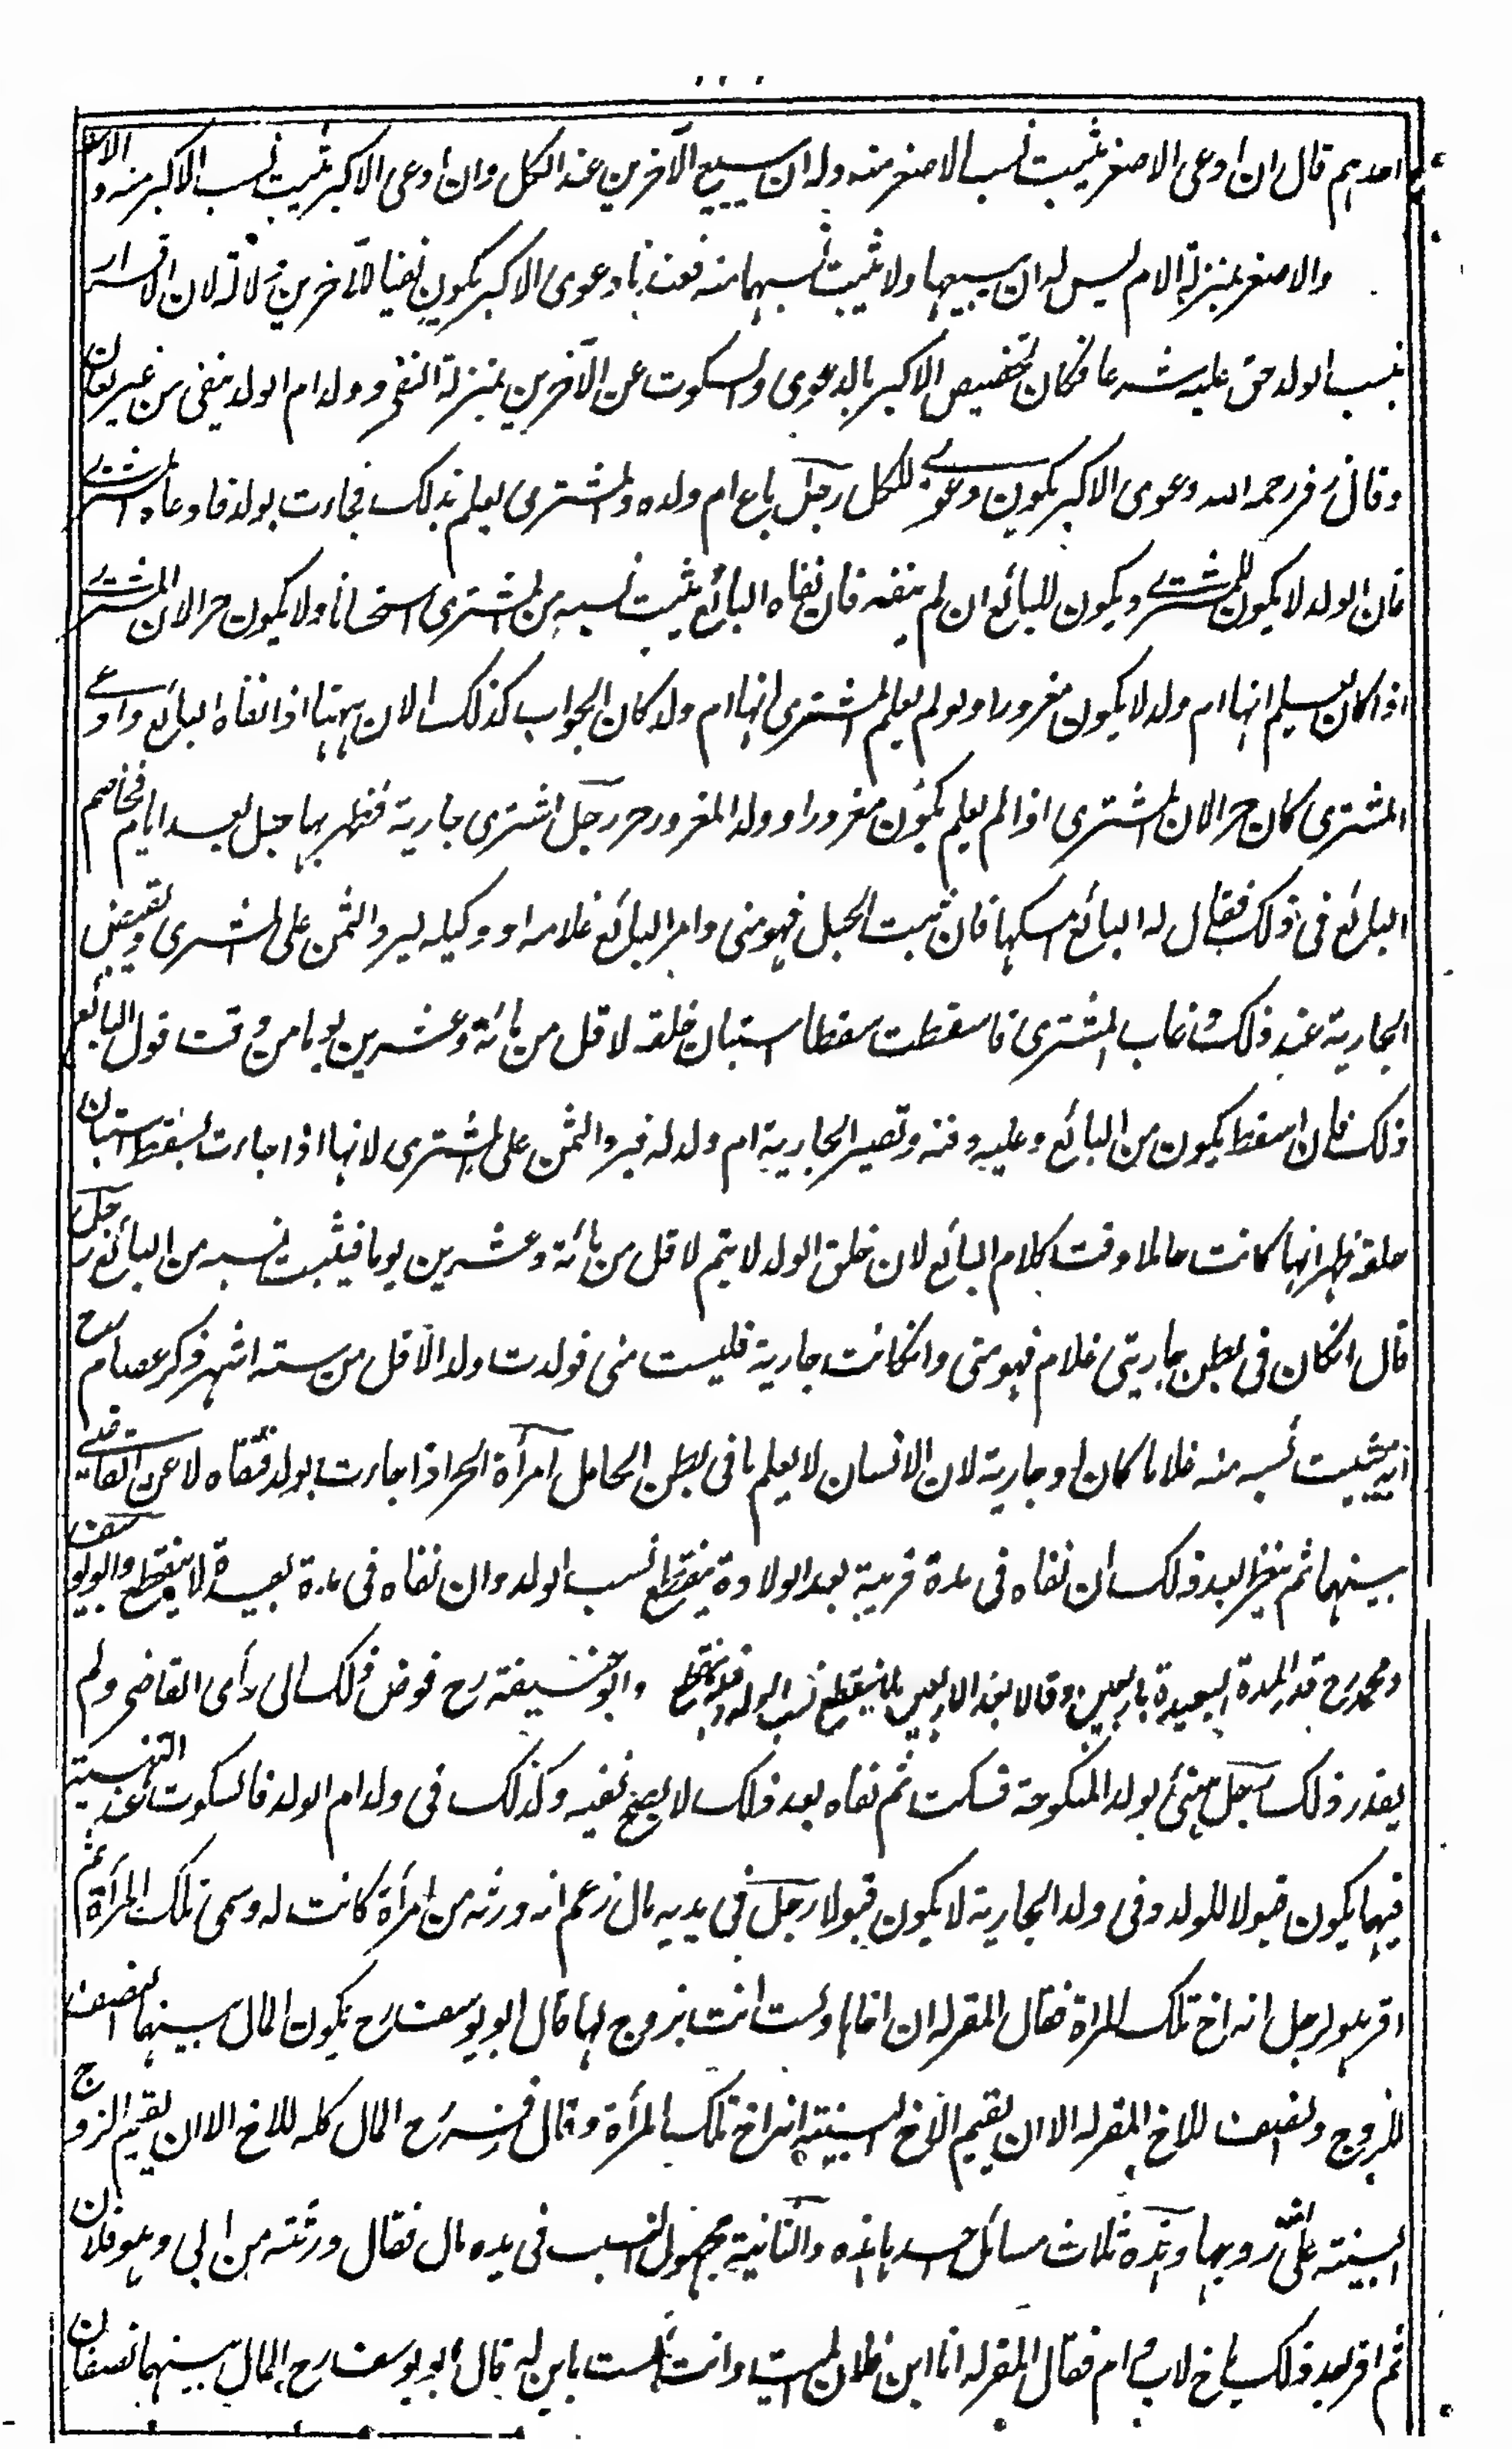 احدهم قال ان ادعى الاصغر يثبت نسب الاصغر منه وله ان يبيع الآخرين عند الكل وان ادعى الاكبر يثبت نسب الاكبر منه و
والاصغر بمنزلة الام ليس له ان يبيعها ولا يثبت نسبهما منه فعندنا دعوى الاكبر يكون نفيا للآخرين دلالة لان الاقرار
بنسب الولد حق عليه شرعا فكان تخصيص الاكبر بالدعوى والسكوت عن الآخرين بمنزلة النفى وولد ام الولد ينفى من غير لعان
وقال زفر رحمه الله دعوى الاكبر يكون دعوى للكل رجل باع ام ولده والمشترى يعلم بذلك فجاءت بولد فادعاه المشترى
فان الولد لا يكون للمشترى ويكون للبائع ان لم ينفه فان نفاه البائع يثبت نسبه من المشترى استحسانا ولا يكون حرا لان المشترى
اذا كان يعلم انها ام ولد لا يكون مغرورا ولو لم يعلم المشترى انها ام ولد كان الجواب كذلك الا ان ههنا اذا نفاه البائع وادعى
المشترى كان حرا لان المشترى اذا لم يعلم يكون مغرورا وولد المغرور حر رجل اشترى جارية فظهر بها حبل بعد ايام فخاصم
البائع فى ذلك فقال له البائع امسكها فان ثبت الحبل فهو منى وامر البائع غلامه او وكيله ليرد الثمن على المشترى ويقبض
الجارية عند ذلك وغاب المشترى فاسقطت سقطا استبان خلقه لاقل من مائة وعشرين يوما من وقت قول البائع
ذلك فان السقط يكون من البائع وعليه دفنه وتصير الجارية ام ولد له فيرد الثمن على المشترى لانها اذا جاءت بسقط استبان
خلقه ظهر انها كانت حاملا وقت كلام البائع لان خلق الولد لا يتم لاقل من مائة وعشرين يوما فيثبت نسبه من البائع رجل
قال ان كان فى بطن جاريتى غلام فهو منى وان كانت جارية فليست منى فولدت ولدا لاقل من ستة اشهر ذكر عصام رح
انه يثبت نسبه منه غلاما كان او جارية لان الانسان لا يعلم ما فى بطن الحامل امرأة الحر اذا جاءت بولد فنفاه لاعن القاضى
بينهما ثم ينظر بعد ذلك ان نفاه فى مدة قريبة بعد الولادة ينقطع نسب الولد وان نفاه فى مدة بعيدة لا ينقطع وابو يوسف
ومحمد رح قدر المدة البعيدة باربعين وقالا بعد الاربعين لا ينقطع نسب الولد وابو حنيفة رح فوض ذلك الى رأى القاضى ولم
يقدر ذلك رجل هنئ بولد المنكوحة فسكت ثم نفاه بعد ذلك لا يصح نفيه وكذلك فى ولد ام الولد فالسكوت عند التهنية
فيهما يكون قبولا للولد وفى ولد الجارية لا يكون قبولا رجل فى يديه مال زعم انه ورثه من امرأة كانت له وسمى تلك المرأة ثم
اقر هو لرجل انه اخ تلك المراة فقال المقر له ان اخاها ولست انت بزوج لها قال ابو يوسف رح يكون المال بينهما النصف
للزوج والنصف للاخ المقر له الا ان يقيم الاخ البينة انه اخ تلك المرأة وقال زفر رح المال كله للاخ الا ان يقيم الزوج
البينة على تزوجها وهذه ثلاث مسائل احدها هذه والثانية مجهول النسب فى يده مال فقال ورثته من ابى وهو فلان
ثم اقر بعد ذلك باخ لاب وام فقال المقر له انا ابن فلان الميت وانت لست بابن له قال ابو يوسف رح المال بينهما نصفان